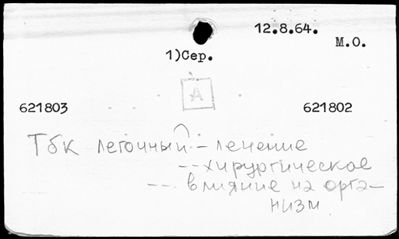 12.8.64.
М.О.
1)Сер.
А
621803 621802
Тбк легочный - лечение
-- хирургическое
--- влияние на орга-
низм